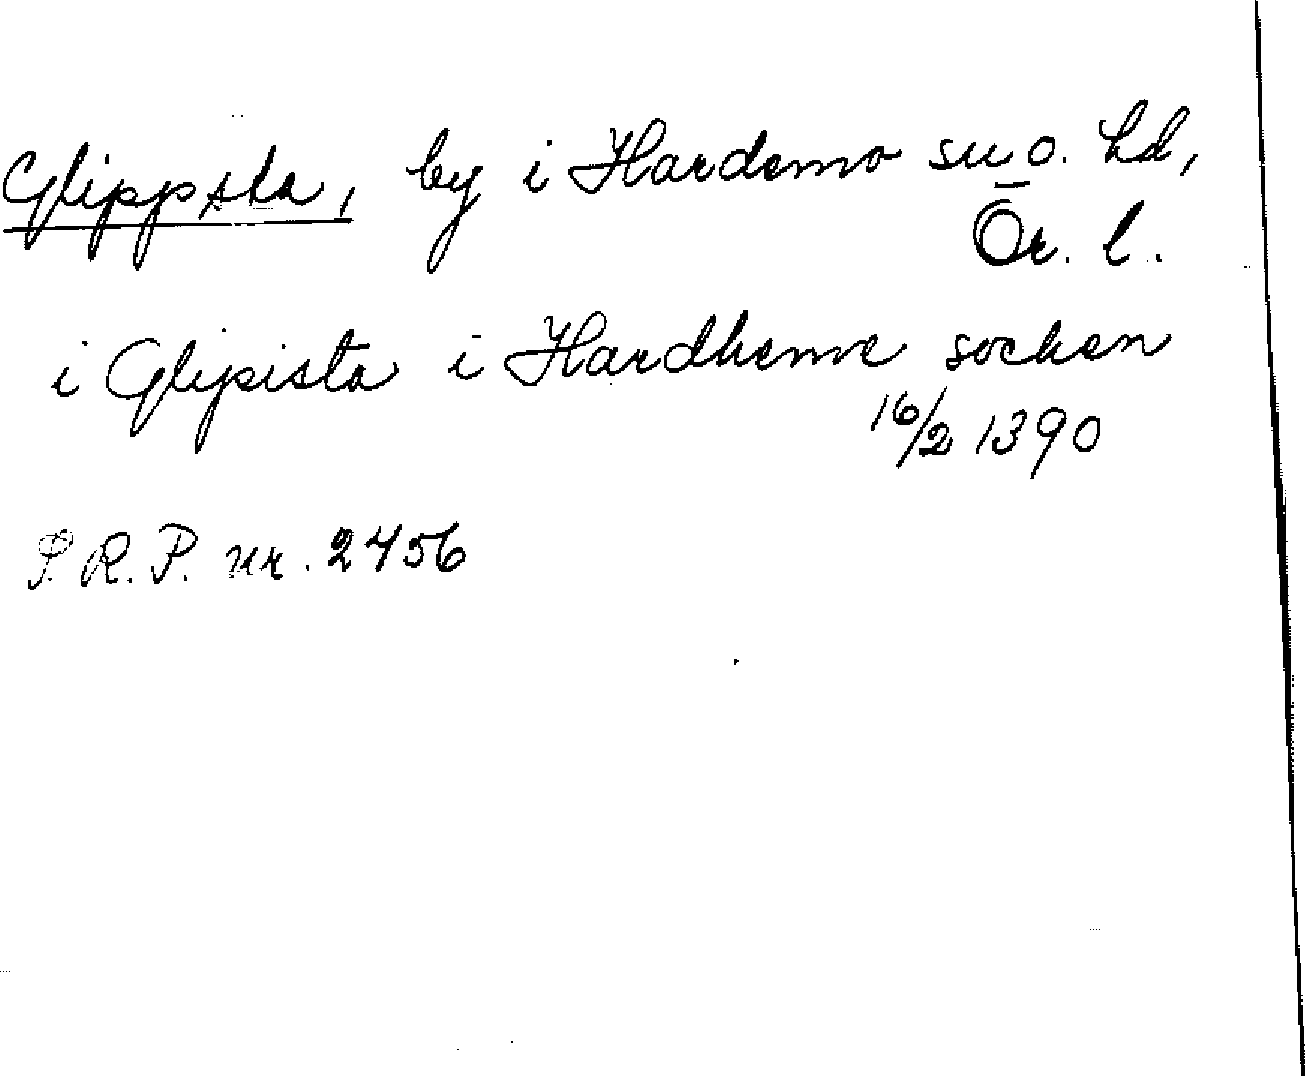 Glippsta, by i Hardemo su o. hd,
Ör. l.
i Glipista i Hardheme socken
16/2 1390
S.R.P. nr. 2456